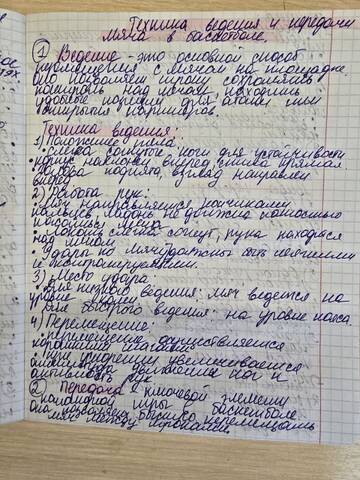 Техника ведения и передачи
мяча в баскетболе.
1 Ведение - это основной способ
перемещения с мячом на площадке.
Оно позволяет игроку сохранять
контроль над мячом, находить
удобные позиции для атаки или
открытия партнёров.
Техника ведения:
1) Положение тела:
слегка согнуты, ноги для устойчивости
корпус наклонён вперед, спина прямая
голова поднята, взгляд направлен
вперед
2) Работа рук:
мяч направляется кончиками
пальцев, ладонь не должна полностью
касаться мяча
локоть слегка согнут, рука находится
над мячом
удары по мячу должны быть лёгкими
и контролируемыми.
3) Место удара
Для низкого ведения: мяч ведется на
уровне колен
Для быстрого ведения: на уровне пояса
4) Перемещение:
перемещение осуществляется
при ускорении увеличивается
движений ног и
активность рук
2 Передача - ключевой элемент
командной игры в баскетболе
она позволяет быстро перемещать
мяч между игроками.